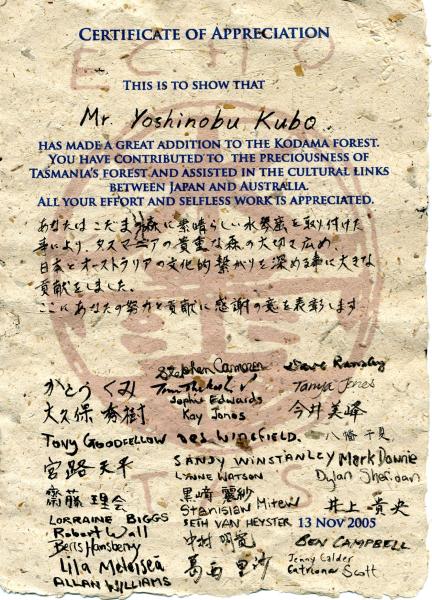 ECHO
CERTIFICATE OF APPRECIATION
THIS IS TO SHOW THAT
Mr. Yoshinobu Kubo
HAS MADE A GREAT ADDITION TO THE KODAMA FOREST.
YOU HAVE CONTRIBUTED TO THE PRECIOUSNESS OF
TASMANIA'S FOREST AND ASSISTED IN THE CULTURAL LINKS
BETWEEN JAPAN AND AUSTRALIA.
ALL YOUR EFFORT AND SELFLESS WORK IS APPRECIATED.
あなたはこだまの森に素晴らしい水琴窟を取り付けた
事により、タスマニアの貴重な森の大切さ広め、
日本とオーストラリアの文化的繋がりを深める事に大きな
貢献をしました。
ここにあなたの努力と貢献に感謝の意を表彰します。
Stephen Cameron
Dave Ransley
かとう くみ
Tanya Jones
大久保 秀樹
Sophie Edwards
Kay Jones
今井美峰
TONY GOODFELLOW
DES WINGFIELD.
八幡
宮路 天平
SANDY WINSTANLEY
Mark Downie
LYNNE WATSON
Dylan Sheridan
齋藤 理会
黒崎 麗紗
Stanislaw
井上 貴央
LORRAINE BIGGS
SETH VAN HEYSTER
13 NOV 2005
Robert Wall
中村 明寛
BEN CAMPBELL
Beris Hansberry
Jenny Calder
Lila
葛西 里沙
Catriona Scott
ALLAN WILLIAMS